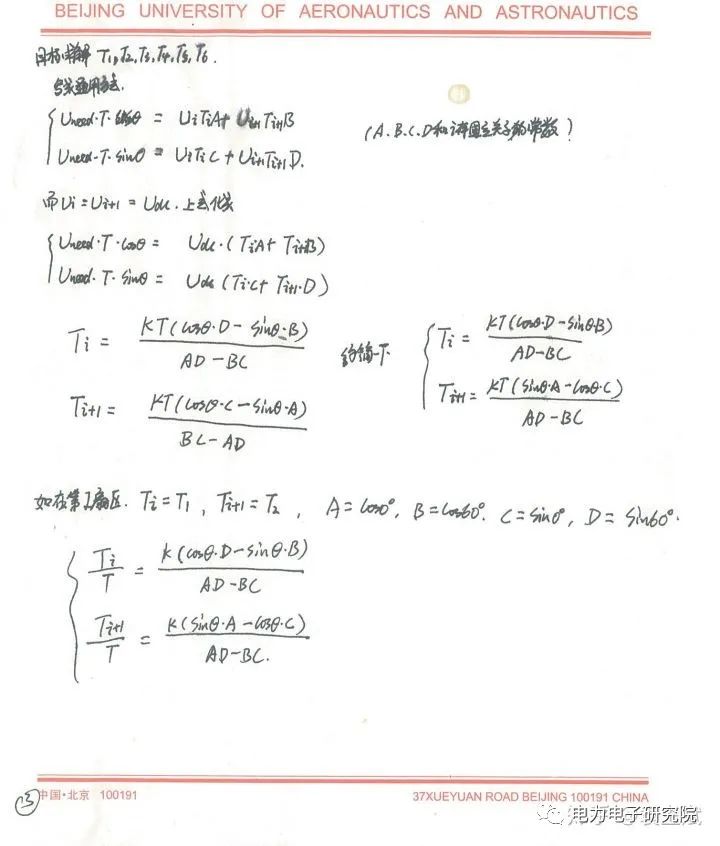 BEIJING UNIVERSITY OF AERONAUTICS AND ASTRONAUTICS
目标:求解 T1,T2,T3,T4,T5,T6.
通用方法.
Uneed·T·cosθ = UiTiA + Ui+1Ti+1B
Uneed·T·sinθ = UiTiC + Ui+1Ti+1D.
(A.B.C.D和 扇区 关 常数)
而Ui=Ui+1=Udc.上式化为
Uneed·T·cosθ = Udc·(TiA+Ti+1B)
Uneed·T·sinθ = Udc(Ti·C+Ti+1·D)
Ti = KT(cosθ·D-sinθ·B) / AD-BC
Ti+1 = KT(cosθ·C-sinθ·A) / BC-AD
一下
Ti = KT(cosθ·D-sinθ·B) / AD-BC
Ti+1 = KT(sinθ·A-cosθ·C) / AD-BC
如在第I扇区. Ti=T1, Ti+1=T2, A=cos0°, B=cos60°. C=sin0°, D=sin60°.
Ti/T = K(cosθ·D-sinθ·B) / AD-BC
Ti+1/T = K(sinθ·A-cosθ·C) / AD-BC.
③
中国·北京 100191
37XUEYUAN ROAD BEIJING 100191 CHINA
电力电子研究院